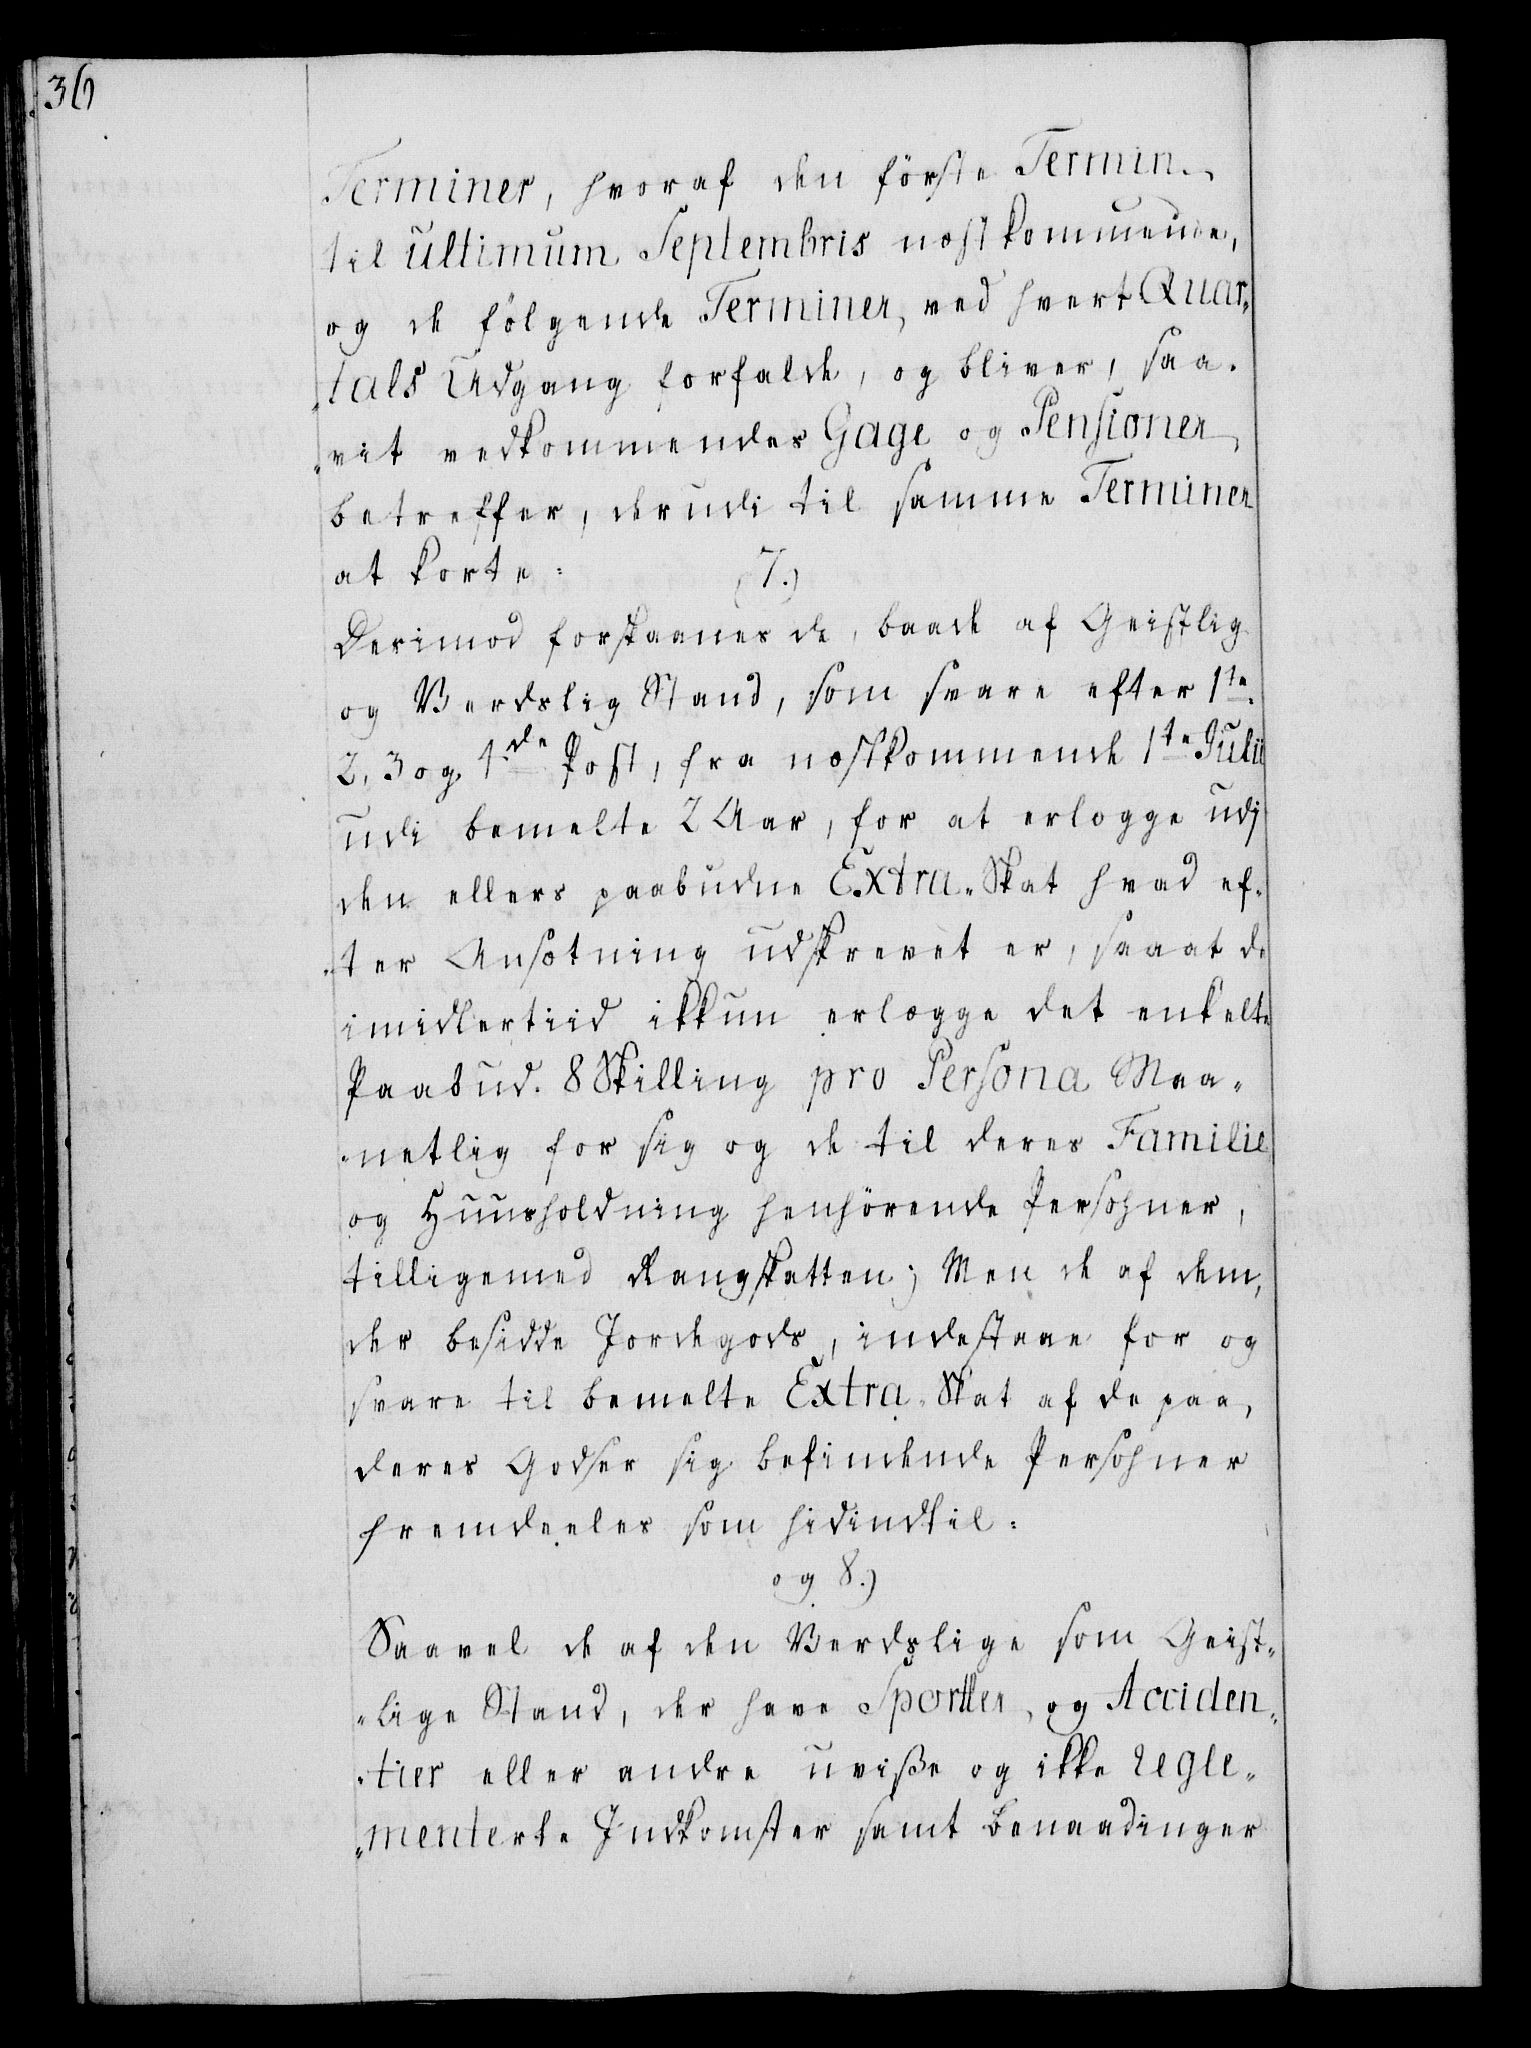 36
Terminer, hvoraf den förste Termin
til ultimum Septembris næstkommende,
og de fölgende Terminer, ved hvert Quar„
„tals Udgang forfalde, og bliver, saa„
„vit vedkommendes Gage og Pensioner
betreffer, derudi til samme Terminer
at korte:
(7.)
Derimod forskaanes de, baade af Geistlig
og Verdslig Stand, som svare efter 1te
2, 3 og 4de Post, fra næstkommende 1te Julii
udi bemelte 2 Aar, for at erlægge udj
den ellers paabudne Extra„Skat hvad ef„
„ter Ansætning udskrevet er, saaat de
imidlertiid ikkun erlægge det enkelte
Paabud. 8 Skilling pro Persona Maa„
„netlig for sig og de til deres Familie
og Huusholdning henhörende Persohner,
tilligemed Rangskatten; Men de af dem,
der besidde Jordegods, indestaae for og
svare til bemelte Extra„Skat af de paa
deres Godser sig befindende Persohner
fremdeeles som hidindtil:
og 8.)
Saavel de af den Verdslige som Geist„
„lige Stand, der have Sportler, og Acciden„
„tier eller andre uviße og ikke regle„
„menterte Indkomster samt benaadinger